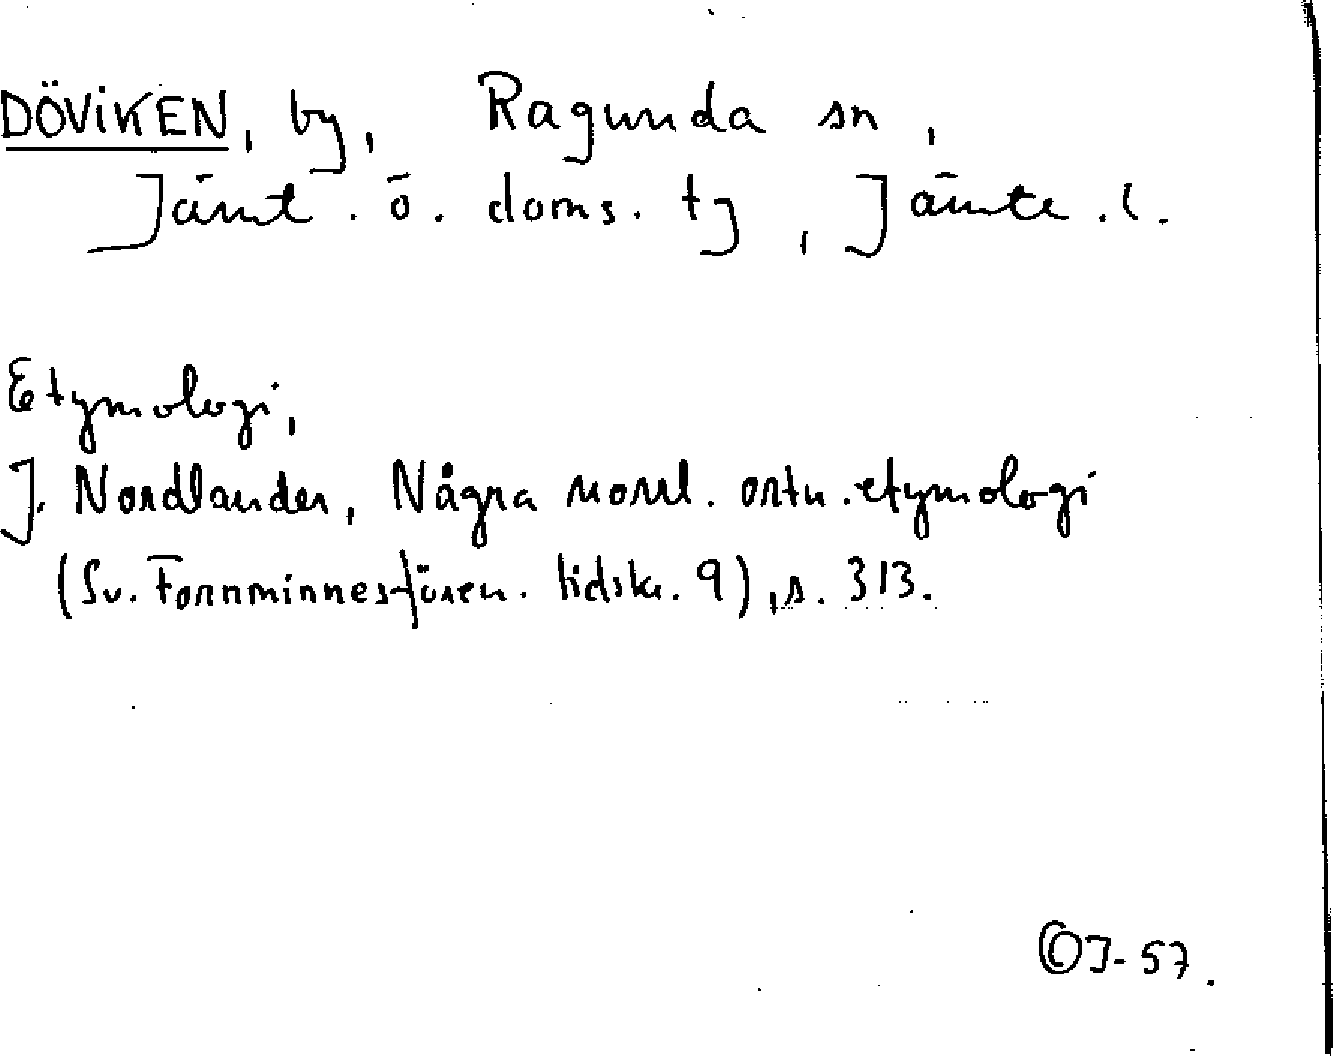 DÖViKEN, by, Ragunda sn,
Jämt. ö. doms. tg, Jämte. l.
Etymologi,
J. Nordlander, Några norrl. ortn. etymologi
(Sv. Fornminnesfören. tidskr. 9), s. 313.
©J-57.